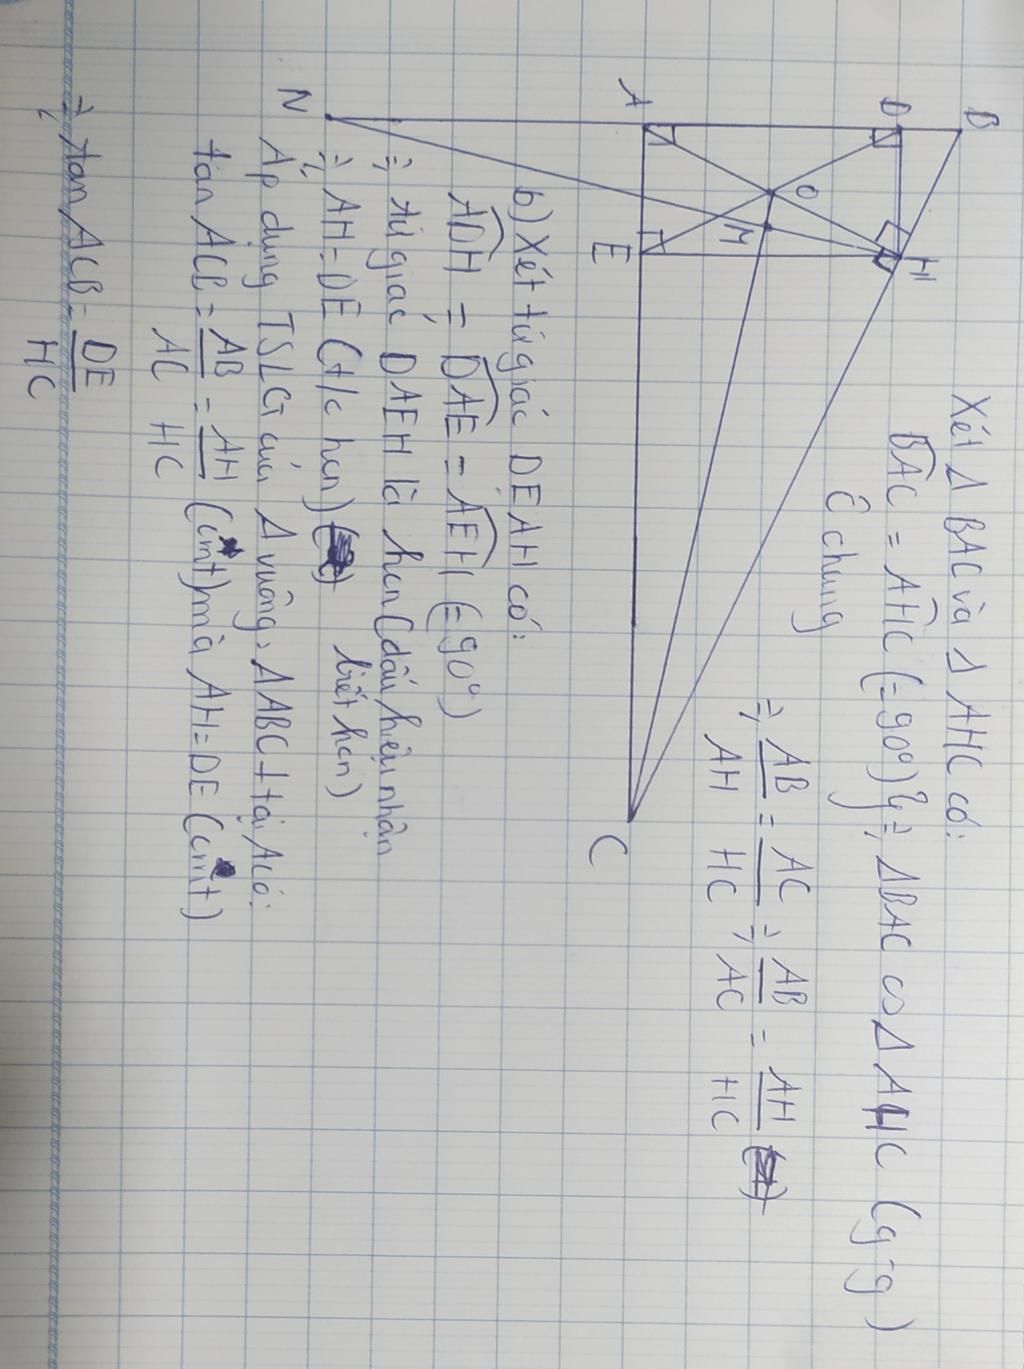 Xét Δ BAC và Δ AHC có:
BAC = AHC (= 90°) } => ΔBAC ∽ Δ AHC (g-g)
Ĉ chung
=> AB/AH = AC/HC => AB/AC = AH/HC
B
D
H
O
M
A
E
C
N
b) Xét tứ giác DEAH có:
ADH = DAE = AEH (= 90°)
=> tứ giác DAEH là hcn (dấu hiệu nhận biết hcn)
=> AH = DE (t/c hcn)
Áp dụng TSLG của Δ vuông, ΔABC ⊥ tại A có:
tan ACB = AB/AC = AH/HC (cmt) mà AH = DE (cmt)
=> tan ACB = DE/HC